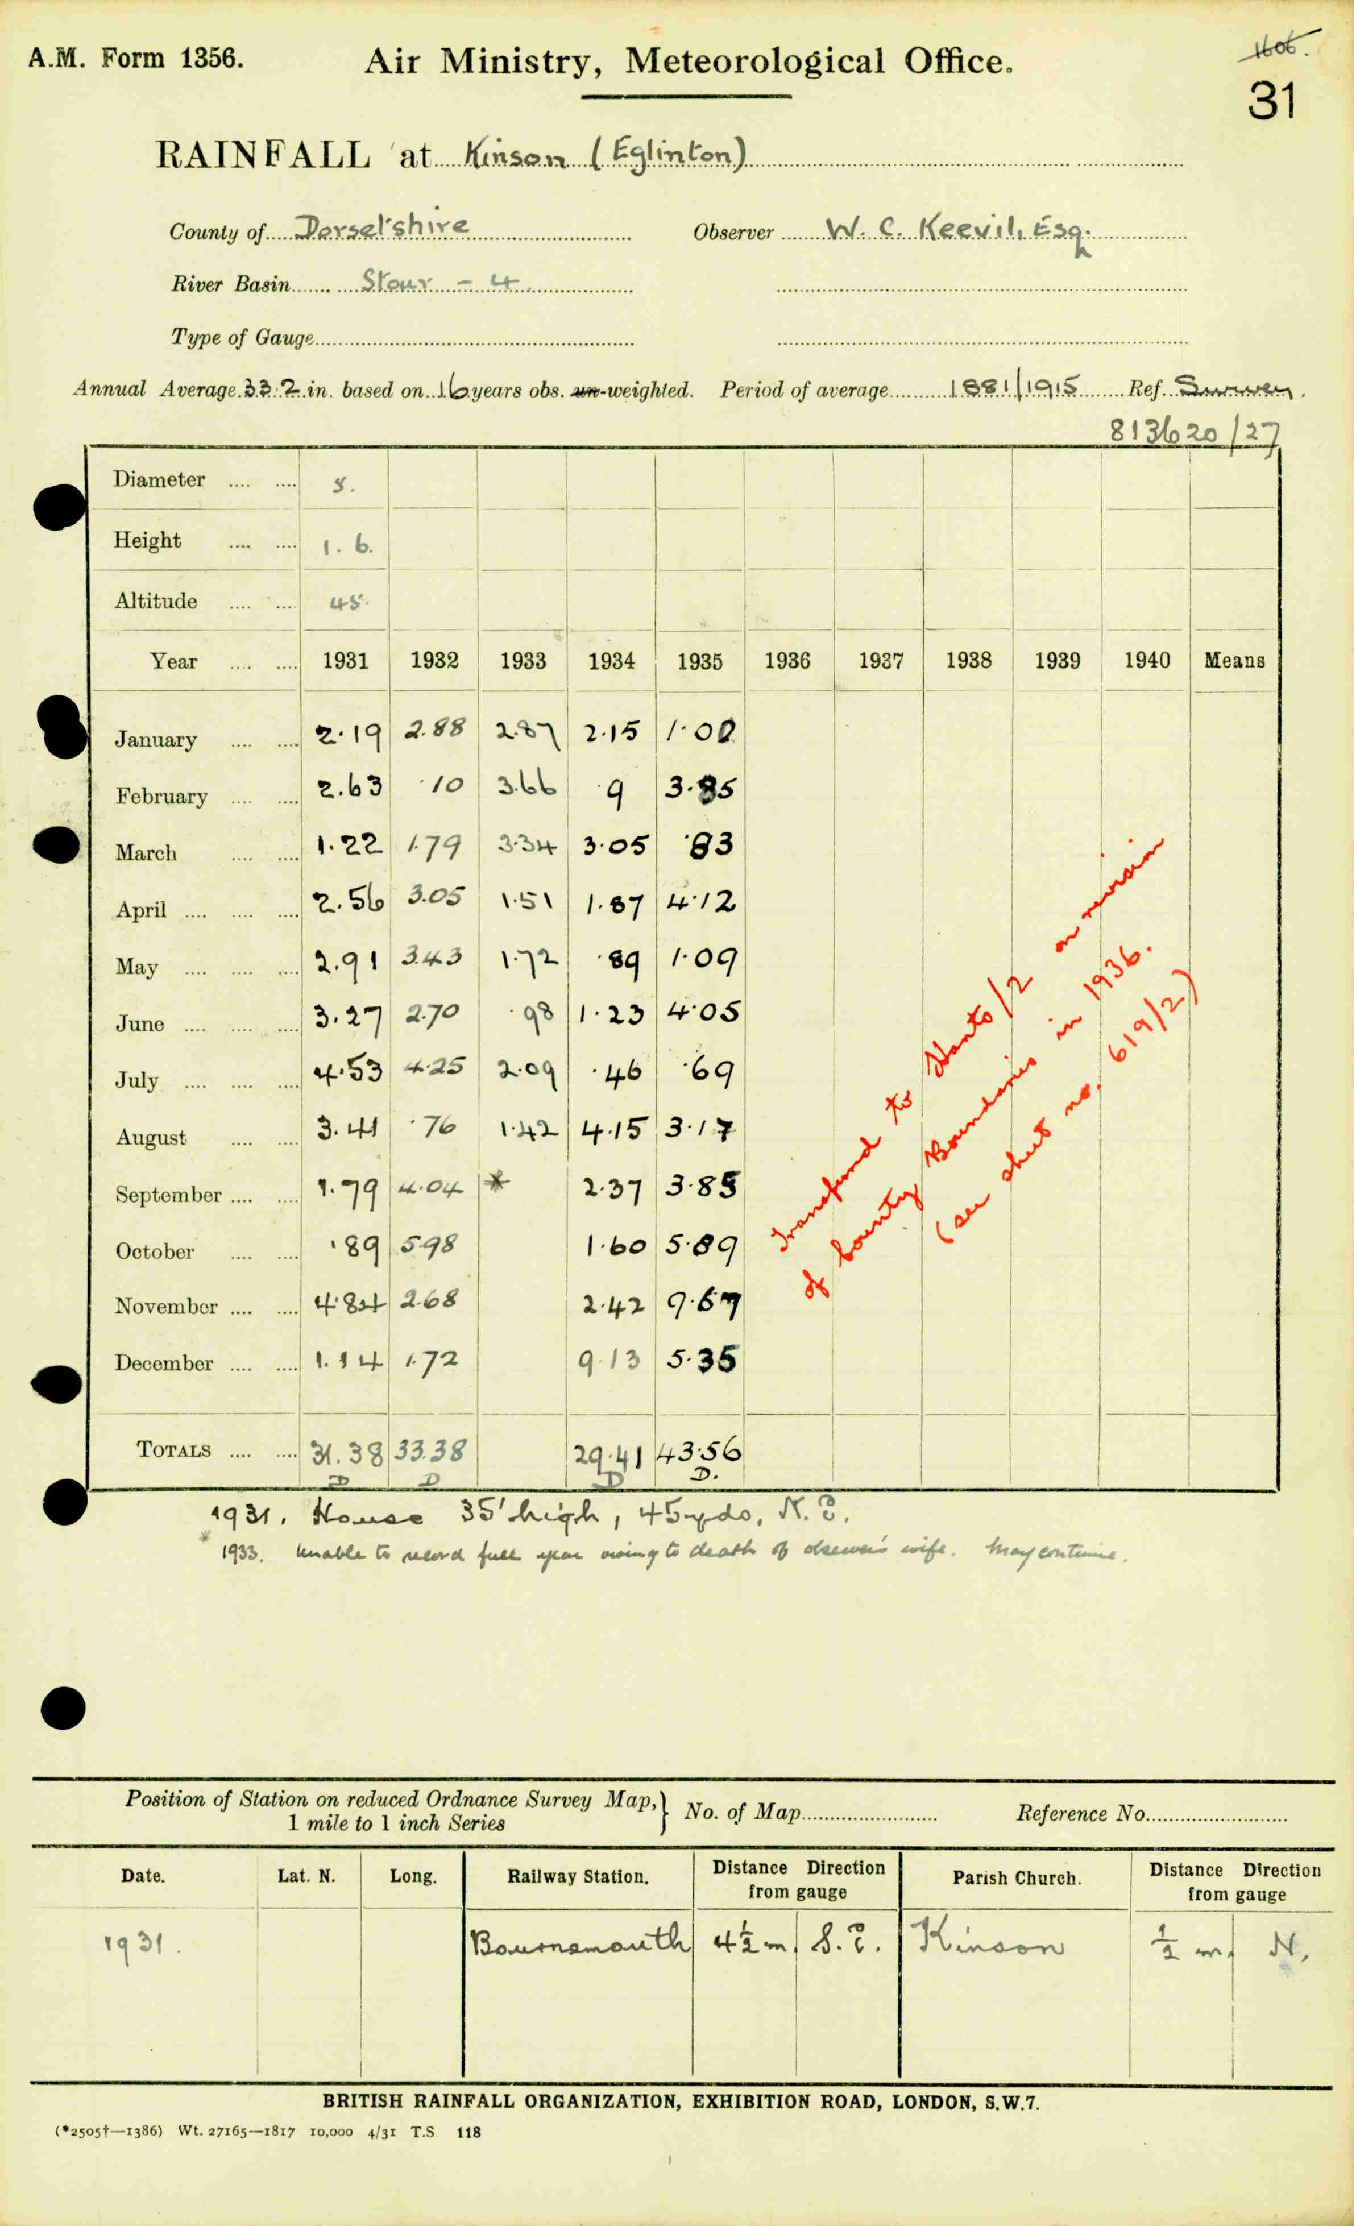 A.M. Form 1356.
Air Ministry, Meteorological Office.
1606.
31
RAINFALL at Kinson (Eglinton)
County of Dorsetshire Observer W. C. Keevil, Esq.
River Basin Stour - 4
Type of Gauge
Annual Average 33.2 in. based on 16 years obs. un-weighted. Period of average 1881/1915 Ref. Survey.
813620/27
Diameter 8.
Height 1. 6.
Altitude 45.
Year 1931 1932 1933 1934 1935 1936 1937 1938 1939 1940 Means
January 2.19 2.88 2.87 2.15 1.00
February 2.63 .10 3.66 .9 3.85
March 1.22 1.79 3.34 3.05 .83
April 2.56 3.05 1.51 1.87 4.12
May 2.91 3.43 1.72 .89 1.09
June 3.27 2.70 .98 1.23 4.05
July 4.53 4.25 2.09 .46 .69
August 3.41 .76 1.42 4.15 3.17
September 1.79 4.04 * 2.37 3.85
October .89 5.98 1.60 5.89
November 4.84 2.68 2.42 9.67
December 1.14 1.72 9.13 5.35
TOTALS 31.38 33.38 29.41 43.56
D D D D.
Transferred to Hants/2 on revision
of County Boundaries in 1936.
(see sheet no. 619/2)
1931. House 35' high, 45 yds, N.E.
* 1933. Unable to record full year owing to death of observer's wife. May continue.
Position of Station on reduced Ordnance Survey Map,
1 mile to 1 inch Series
No. of Map
Reference No.
Date. Lat. N. Long. Railway Station. Distance Direction from gauge Parish Church. Distance Direction from gauge
1931. Bournemouth 4½ m. S.E. Kinson ½ m. N.
BRITISH RAINFALL ORGANIZATION, EXHIBITION ROAD, LONDON, S.W.7.
(*2505†—1386) Wt. 27165—1817 10,000 4/31 T.S 118